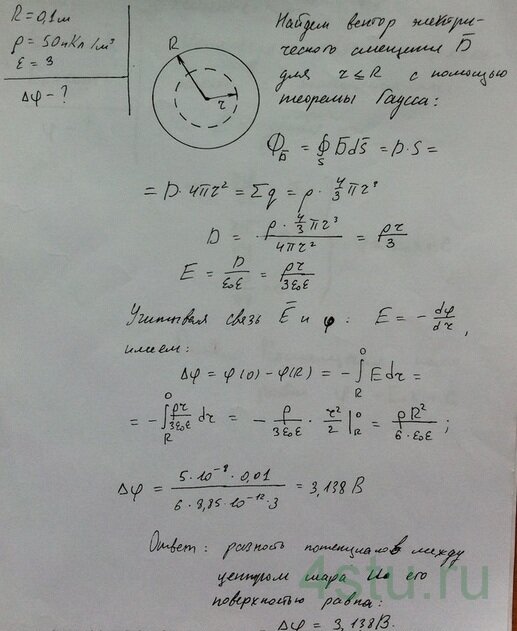 R = 0,1м
ρ = 50нКл/м³
ε = 3
Δφ - ?
R
r
Найдем вектор электри-
ческого смещения D̄
для r ≤ R с помощью
теоремы Гаусса:
Φ_D̄ = ∮_S D̄dS̄ = D·S =
= D·4πr² = Σq = ρ·4/3πr³
D = (ρ·4/3πr³)/(4πr²) = ρr/3
E = D/(ε₀ε) = ρr/(3ε₀ε)
Учитывая связь Ē и φ: E = -dφ/dr,
имеем:
Δφ = φ(0) - φ(R) = -∫_R^0 Edr =
= -∫_R^0 ρr/(3ε₀ε) dr = -ρ/(3ε₀ε) · r²/2 |_R^0 = ρR²/(6·ε₀ε);
Δφ = (5·10⁻⁸·0,01)/(6·8,85·10⁻¹²·3) = 3,138 В
Ответ: разность потенциалов между
центром шара и его
поверхностью равна:
Δφ = 3,138В.
4stu.ru